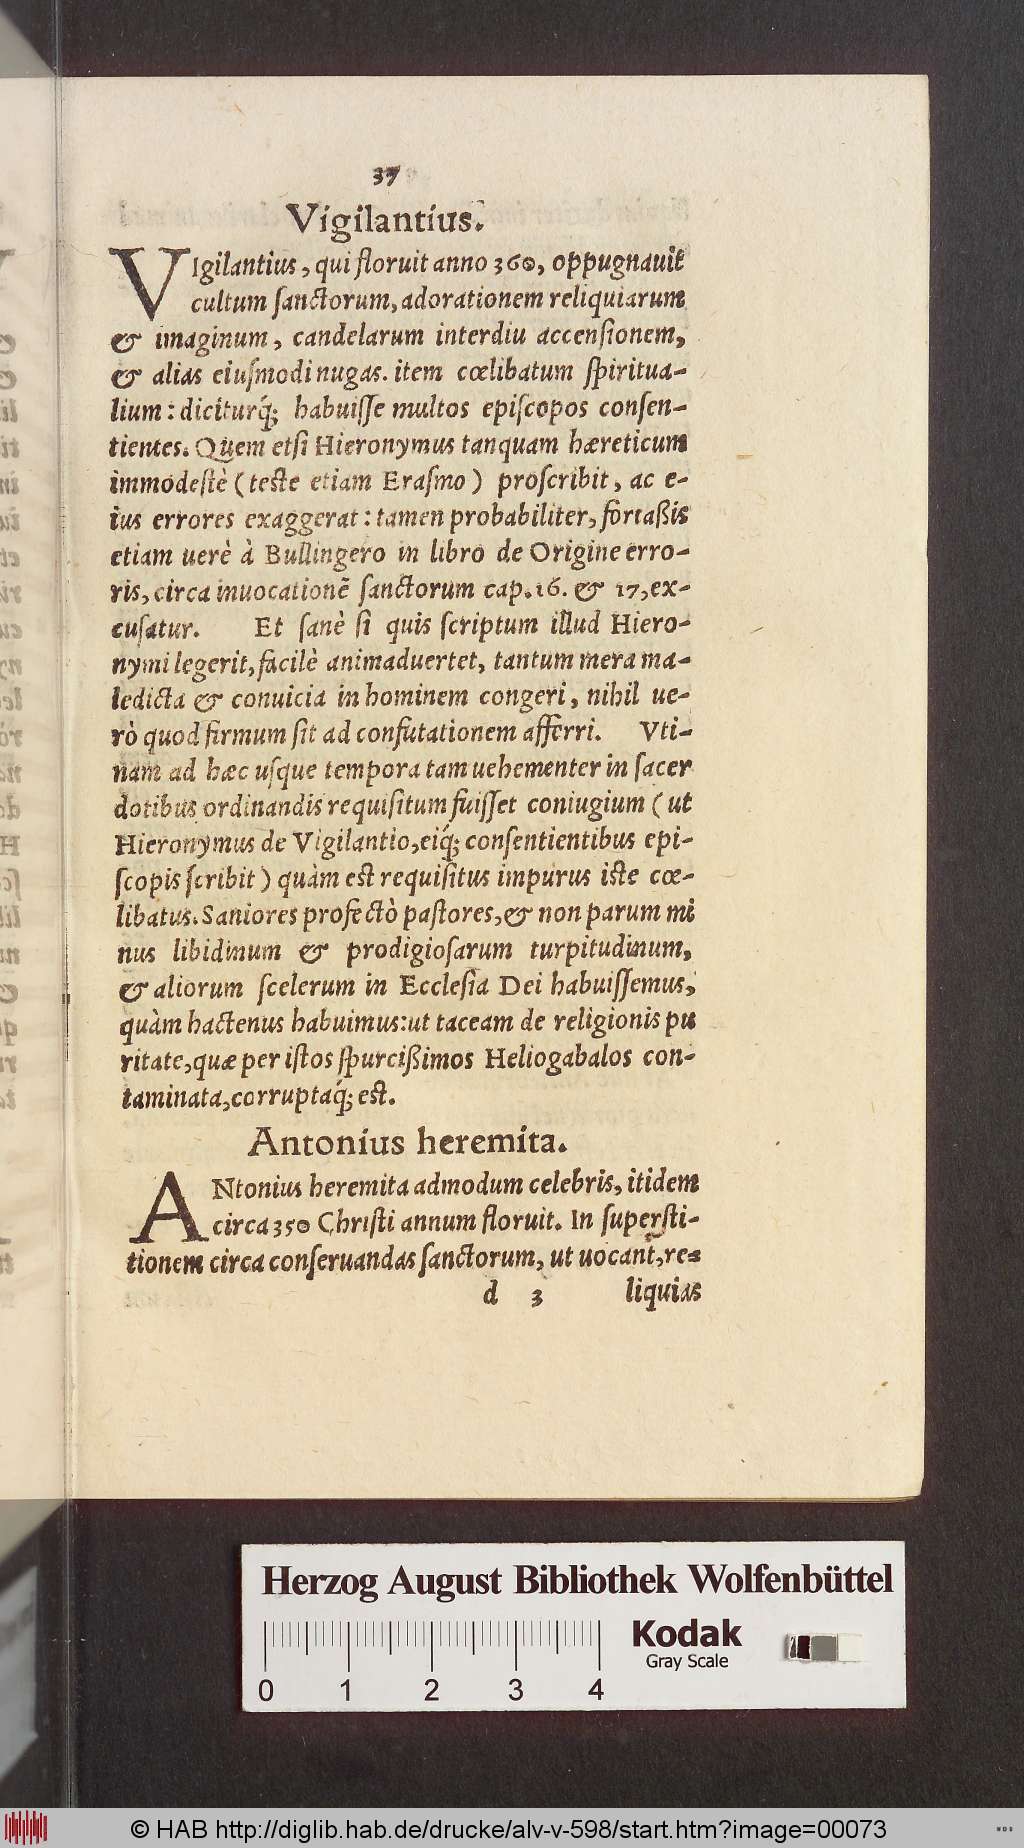 37
Vigilantius.
VIgilantius, qui floruit anno 360, oppugnauit
cultum sanctorum, adorationem reliquiarum
& imaginum, candelarum interdiu accensionem,
& alias eiusmodi nugas. item cœlibatum spiritua-
lium: diciturq́; habuisse multos episcopos consen-
tientes. Quem etsi Hieronymus tanquam hæreticum
immodestè (teste etiam Erasmo) proscribit, ac e-
ius errores exaggerat: tamen probabiliter, fortaßis
etiam uerè à Bullingero in libro de Origine erro-
ris, circa inuocationẽ sanctorum cap. 16. & 17, ex-
cusatur. Et sanè si quis scriptum illud Hiero-
nymi legerit, facilè animaduertet, tantum mera ma-
ledicta & conuicia in hominem congeri, nihil ue-
rò quod firmum sit ad confutationem afferri. Vti-
nam ad hæc usque tempora tam uehementer in sacer
dotibus ordinandis requisitum fuisset coniugium (ut
Hieronymus de Vigilantio, eiq́; consentientibus epi-
scopis scribit) quàm est requisitus impurus iste cœ-
libatus. Saniores profectò pastores, & non parum mi
nus libidinum & prodigiosarum turpitudinum,
& aliorum scelerum in Ecclesia Dei habuissemus,
quàm hactenus habuimus: ut taceam de religionis pu
ritate, quæ per istos spurcißimos Heliogabalos con-
taminata, corruptaq́; est.
Antonius heremita.
ANtonius heremita admodum celebris, itidem
circa 350 Christi annum floruit. In supersti-
tionem circa conseruandas sanctorum, ut uocant, re-
d 3 liquias
Herzog August Bibliothek Wolfenbüttel
Kodak
Gray Scale
0 1 2 3 4
© HAB http://diglib.hab.de/drucke/alv-v-598/start.htm?image=00073